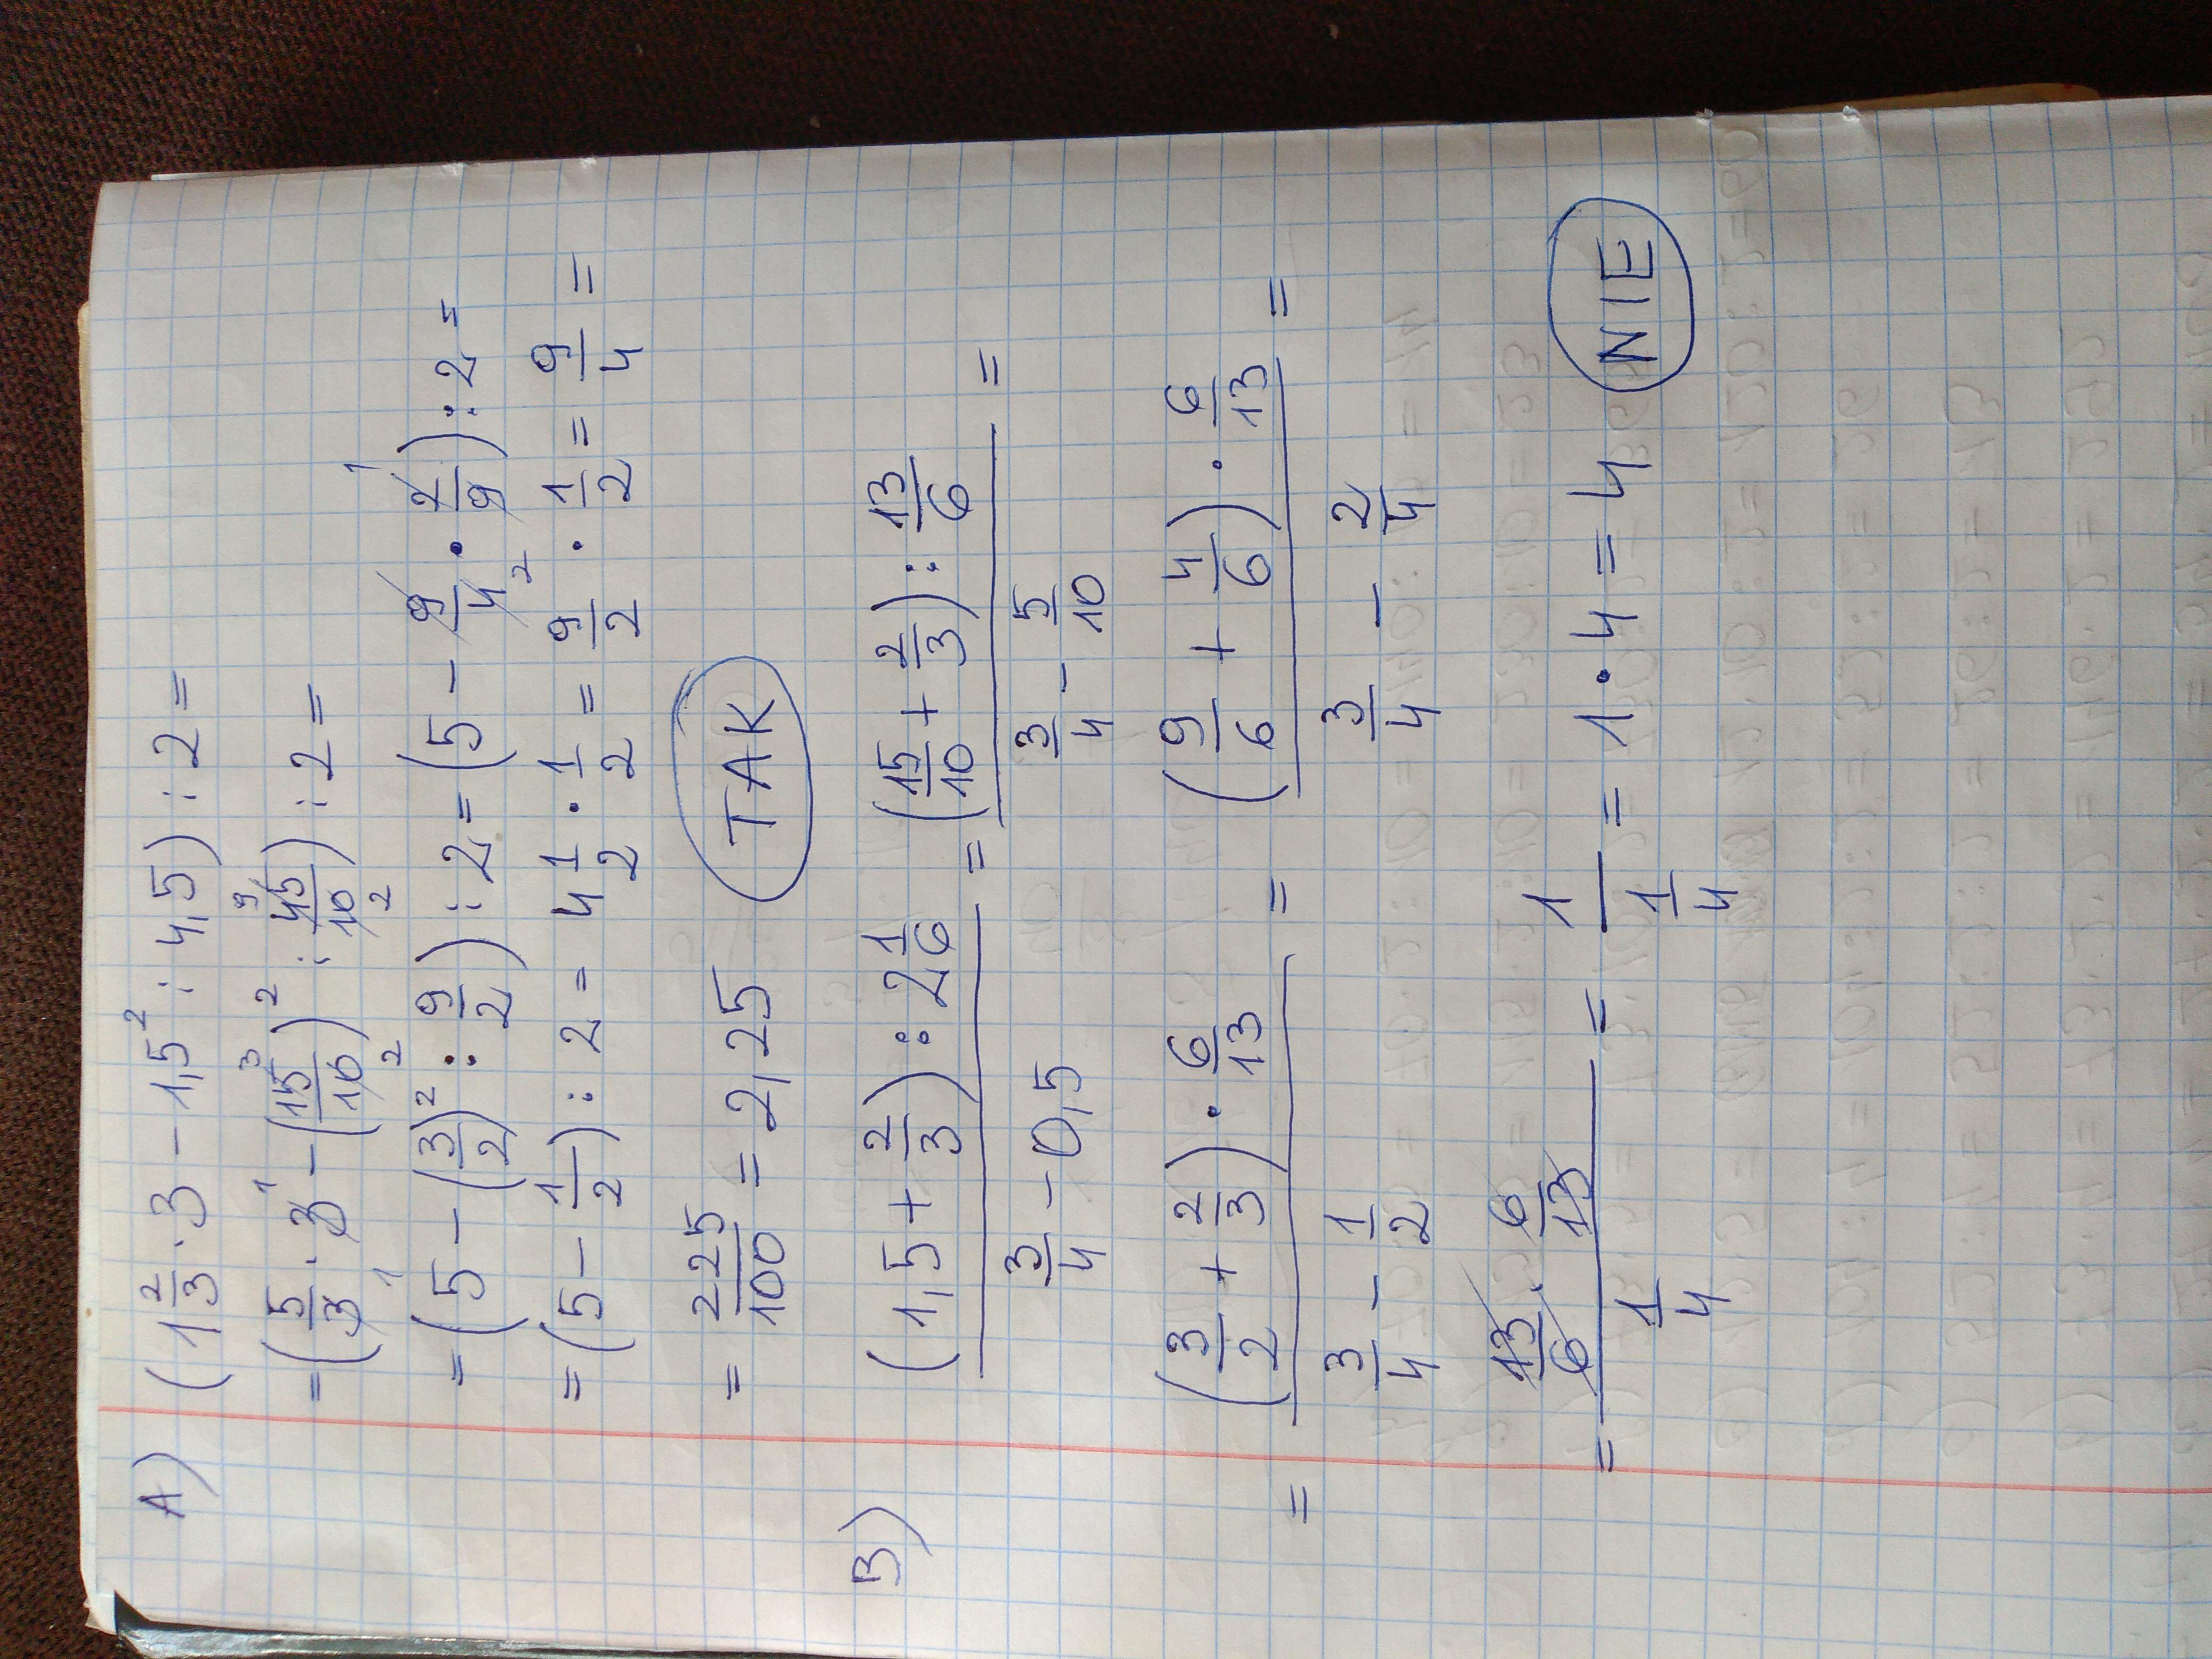 A) (1 2/3 · 3 - 1,5² : 4,5) : 2 =
= (5/3 · 3 - (15/10)² : 45/10) : 2 =
= (5 - (3/2)² : 9/2) : 2 = (5 - 9/4 · 2/9) : 2 =
= (5 - 1/2) : 2 = 4 1/2 · 1/2 = 9/2 · 1/2 = 9/4 =
= 225/100 = 2,25 TAK
B) (1,5 + 2/3) : 2 1/6 / (3/4 - 0,5) = (15/10 + 2/3) : 13/6 / (3/4 - 5/10) =
= (3/2 + 2/3) · 6/13 / (3/4 - 1/2) = (9/6 + 4/6) · 6/13 / (3/4 - 2/4) =
= 13/6 · 6/13 / 1/4 = 1 / 1/4 = 1 · 4 = 4 NIE